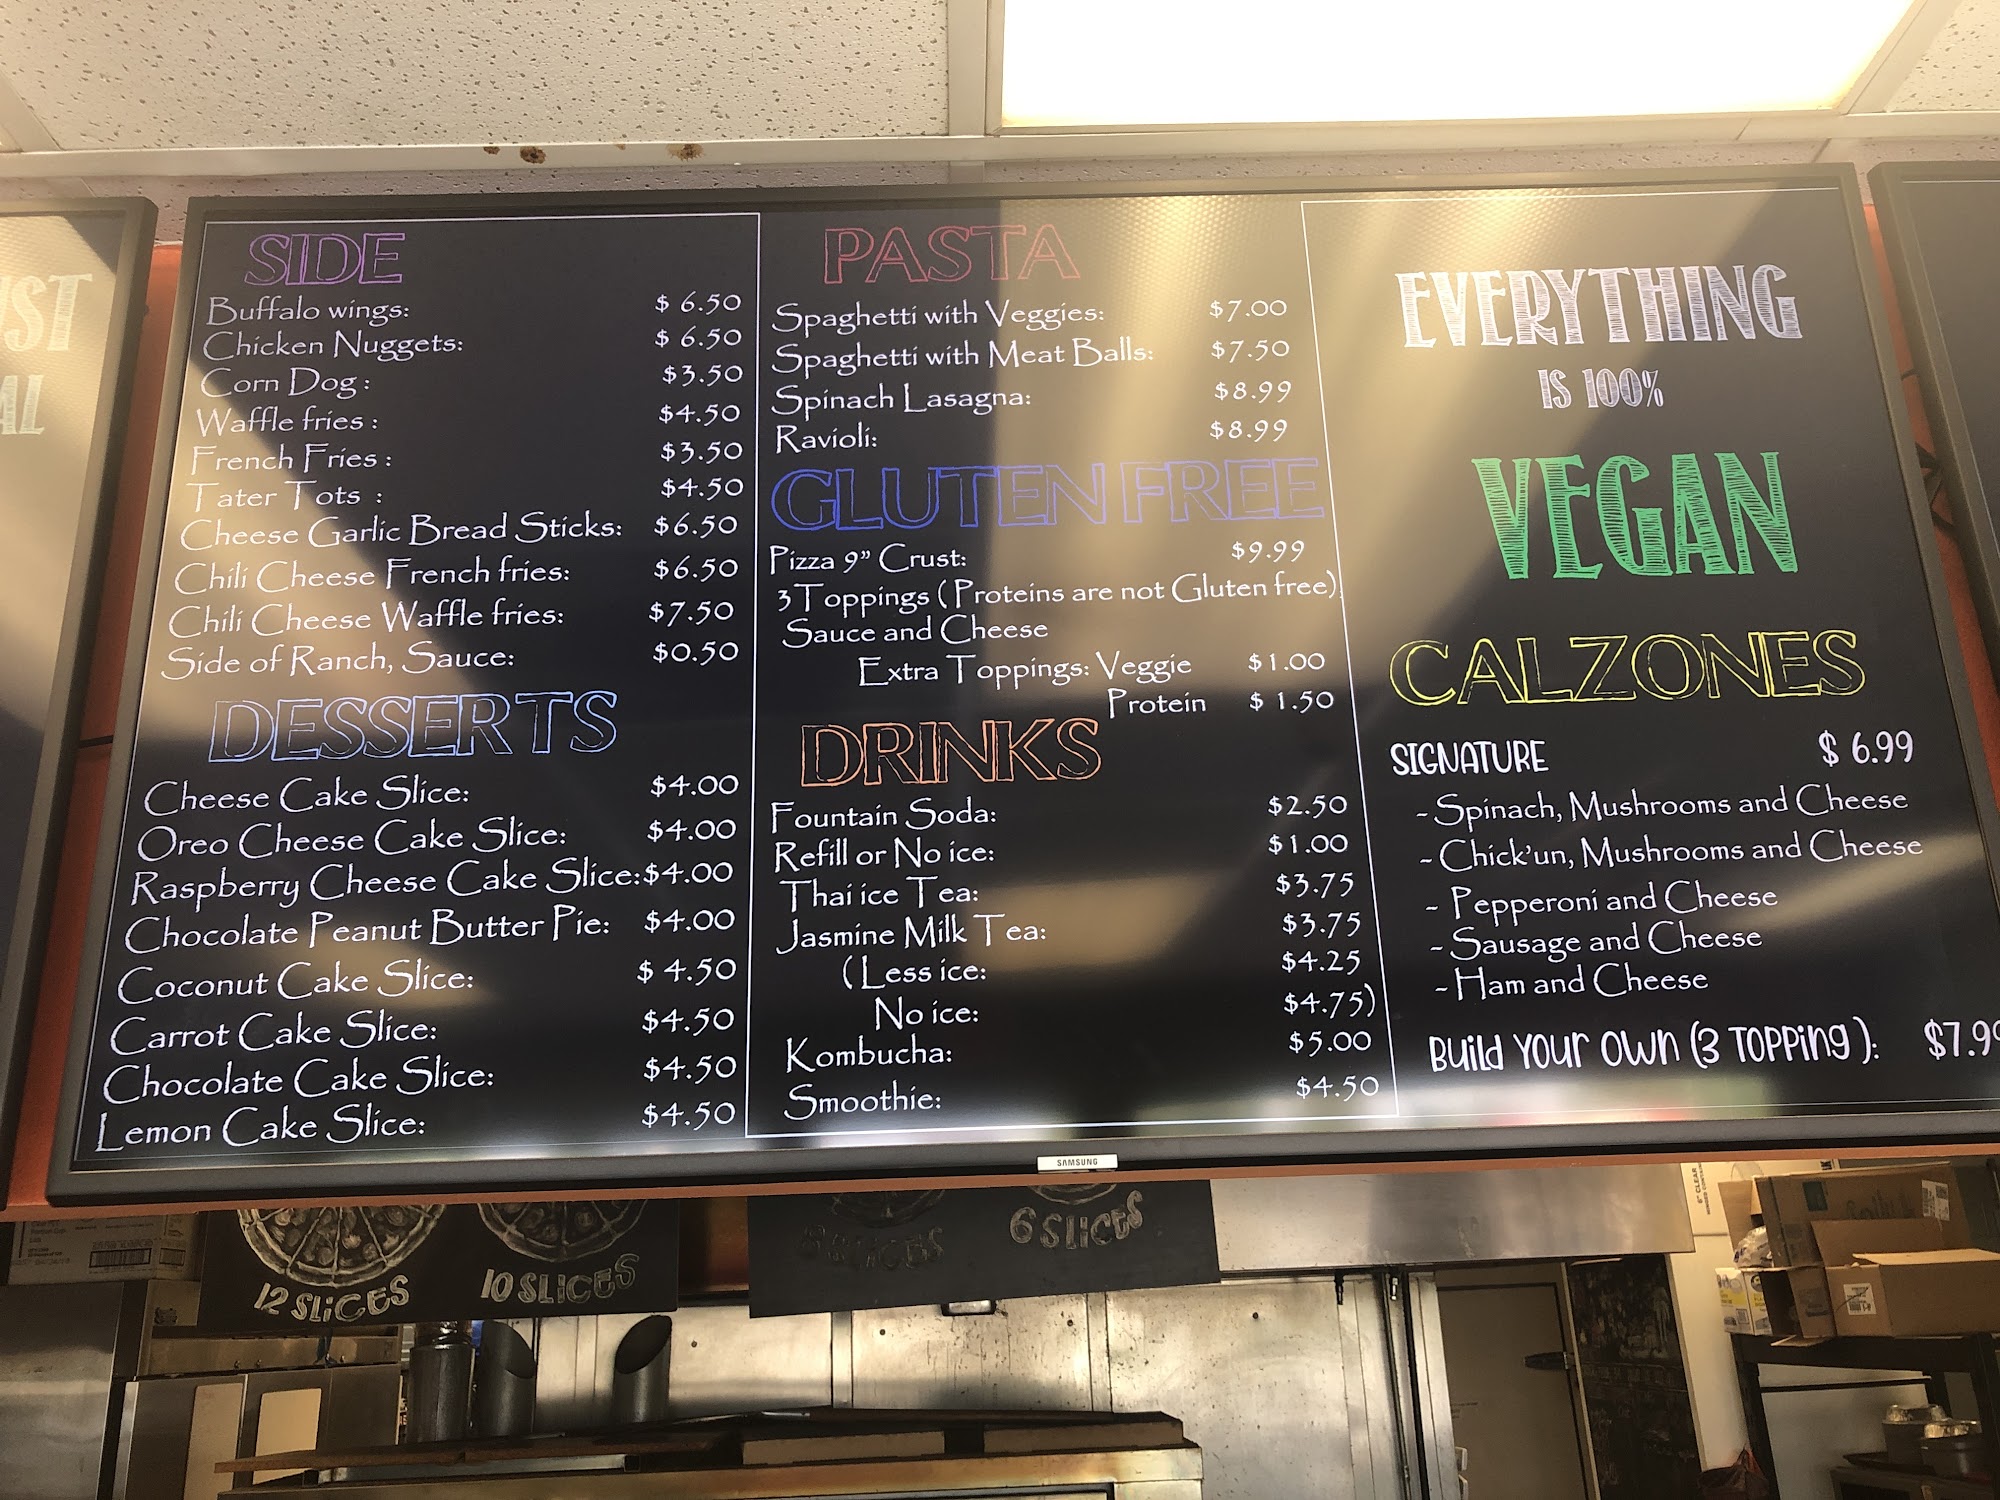 SIDE
Buffalo wings: $ 6.50
Chicken Nuggets: $ 6.50
Corn Dog : $3.50
Waffle fries : $4.50
French Fries : $3.50
Tater Tots : $4.50
Cheese Garlic Bread Sticks: $6.50
Chili Cheese French fries: $6.50
Chili Cheese Waffle fries: $7.50
Side of Ranch, Sauce: $0.50
DESSERTS
Cheese Cake Slice: $4.00
Oreo Cheese Cake Slice: $4.00
Raspberry Cheese Cake Slice: $4.00
Chocolate Peanut Butter Pie: $4.00
Coconut Cake Slice: $ 4.50
Carrot Cake Slice: $4.50
Chocolate Cake Slice: $4.50
Lemon Cake Slice: $4.50
PASTA
Spaghetti with Veggies: $7.00
Spaghetti with Meat Balls: $7.50
Spinach Lasagna: $8.99
Ravioli: $8.99
GLUTEN FREE
Pizza 9" Crust: $9.99
3 Toppings (Proteins are not Gluten free)
Sauce and Cheese
Extra Toppings: Veggie $1.00
Protein $ 1.50
DRINKS
Fountain Soda: $2.50
Refill or No ice: $1.00
Thai ice Tea: $3.75
Jasmine Milk Tea: $3.75
(Less ice: $4.25
No ice: $4.75)
Kombucha: $5.00
Smoothie: $4.50
EVERYTHING
IS 100%
VEGAN
CALZONES
SIGNATURE $ 6.99
- Spinach, Mushrooms and Cheese
- Chick'un, Mushrooms and Cheese
- Pepperoni and Cheese
- Sausage and Cheese
- Ham and Cheese
Build Your Own (3 Topping): $7.99
SAMSUNG
12 SLICES
10 SLICES
8 SLICES
6 SLICES